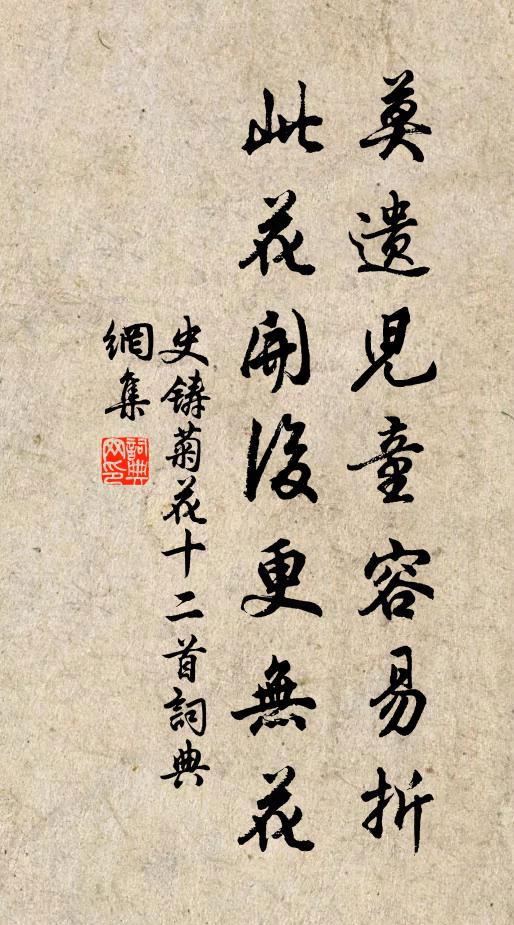 莫遺兒童容易折
此花開後更無花
史鋳菊花十二首詞典
網集
詞典
网印